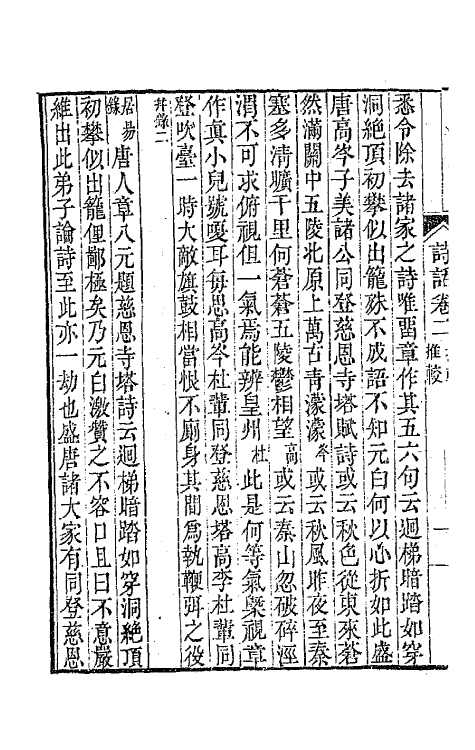 詩話卷二
推陵
悉令除去諸家之詩唯畱章作其五六句云迴梯暗踏如穿
洞絶頂初攀似出籠殊不成語不知元白何以心折如此盛
唐高岑子美諸公同登慈恩寺塔賦詩或云秋色從東來蒼
然滿關中五陵北原上萬古青濛濛岑或云秋風昨夜至秦
塞多清曠千里何蒼蒼五陵鬱相望高或云秦山忽破碎涇
渭不可求俯視但一氣焉能辨皇州杜此是何等氣槩視章
作真小兒號嗄耳每思高岑杜輩同登慈恩塔高李杜輩同
登吹臺一時大敵旗鼓相當恨不廁身其間爲執鞭弭之役
并錄二
居易錄唐人章八元題慈恩寺塔詩云迴梯暗踏如穿洞絶頂
初攀似出籠俚鄙極矣乃元白激賞之不容口且曰不意嚴
維出此弟子論詩至此亦一劫也盛唐諸大家有同登慈恩